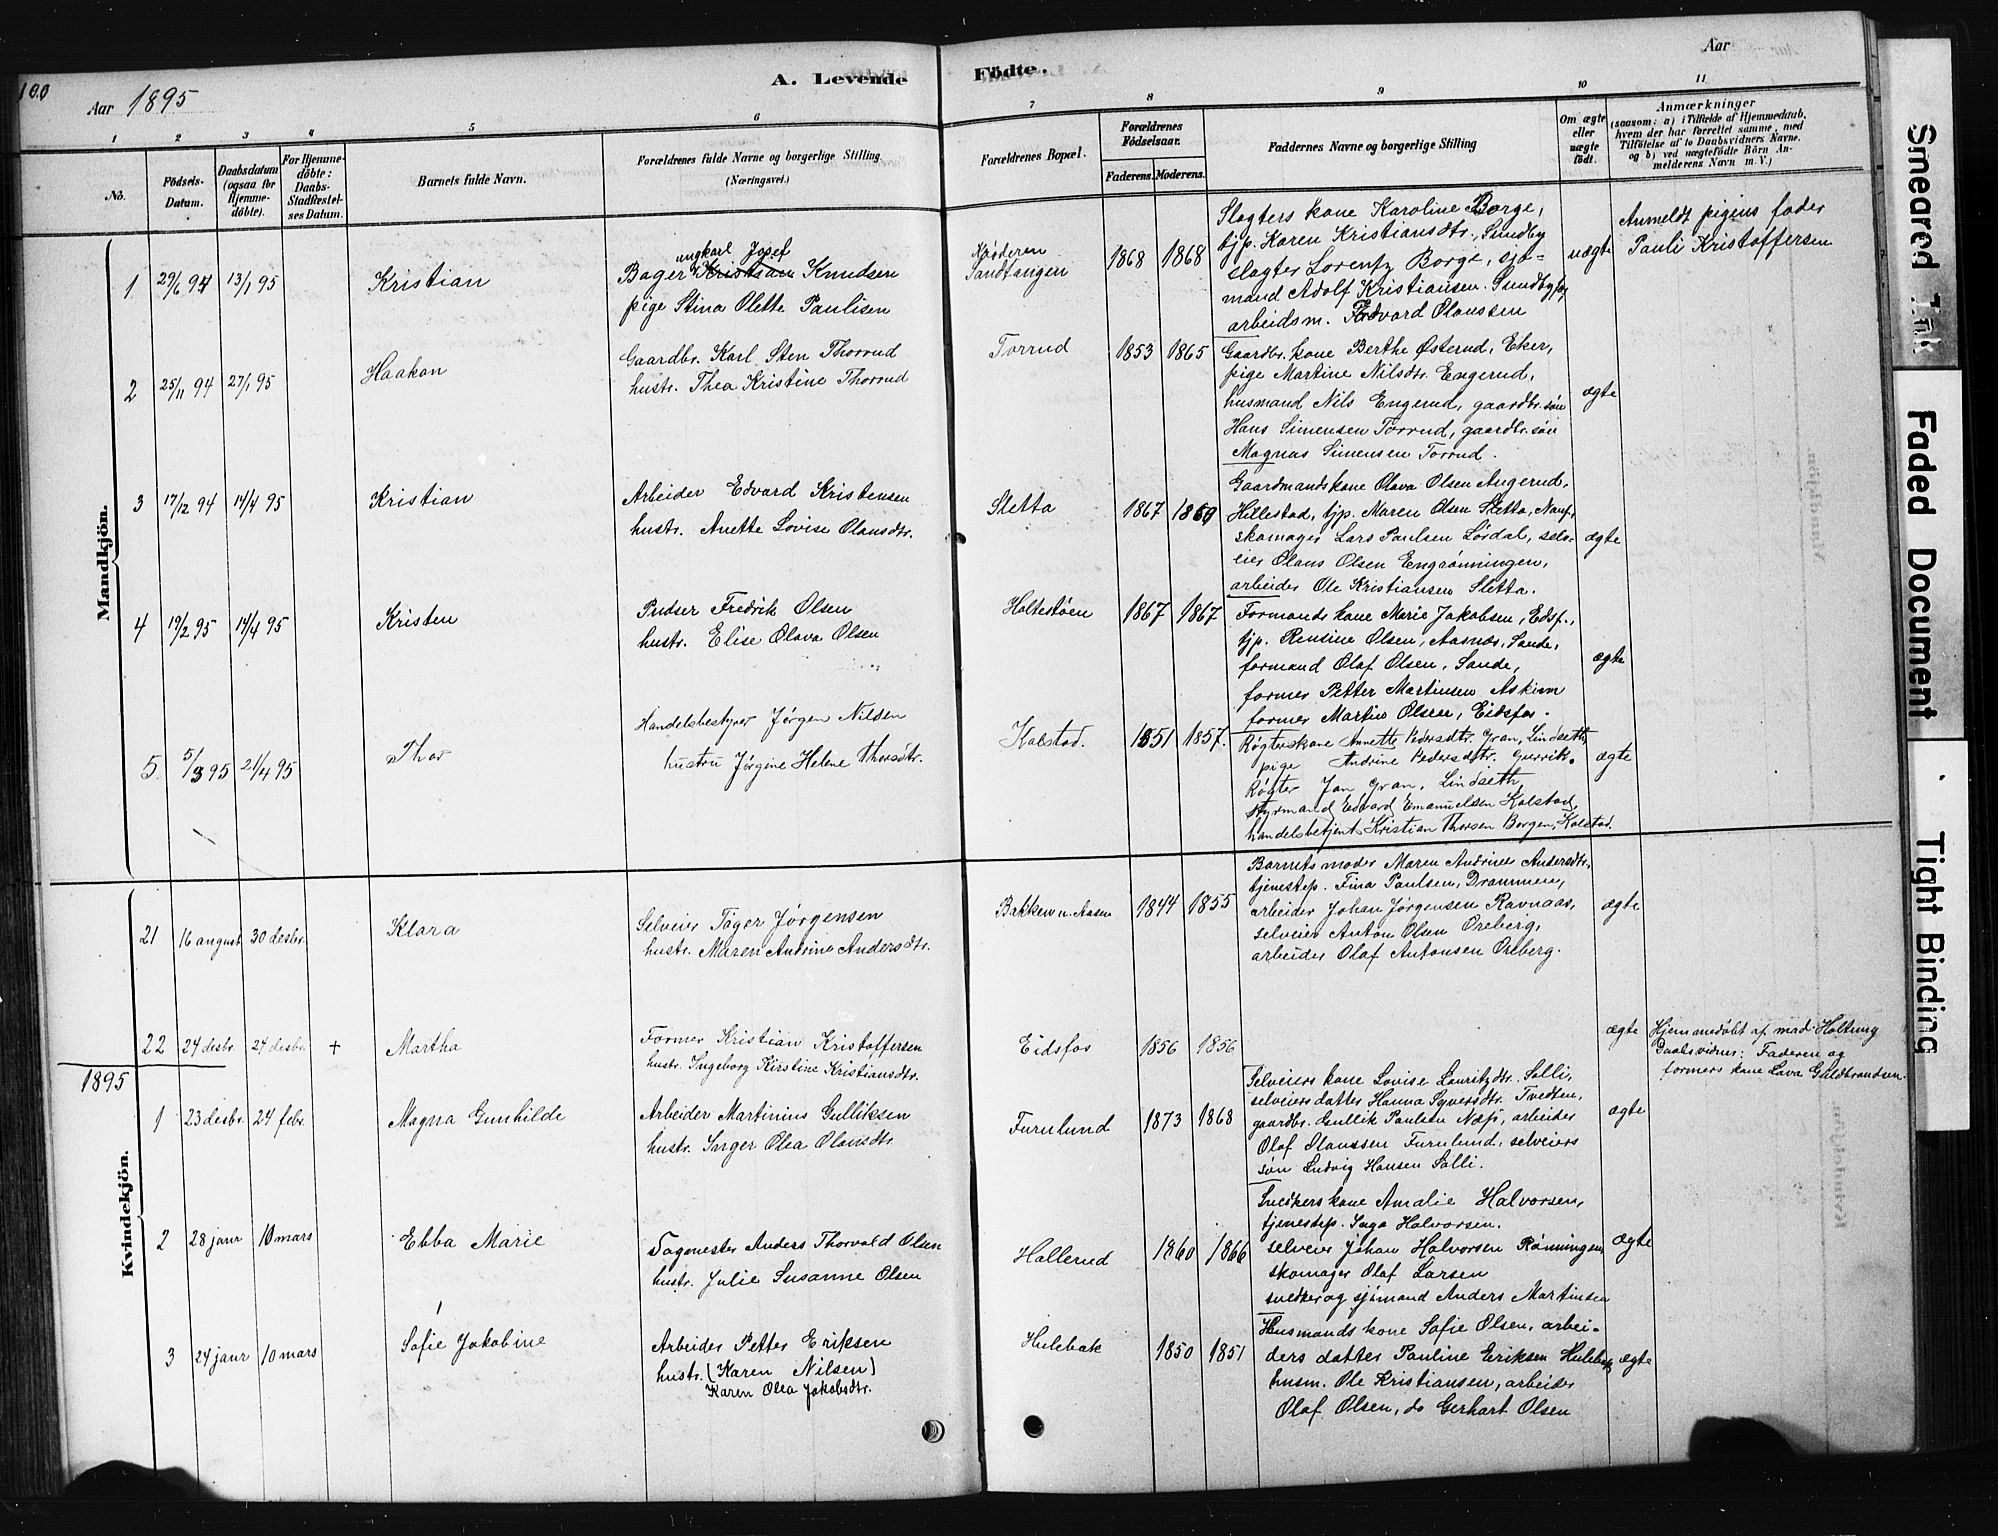 100
Aar 1895
A. Levende
Födte.
Aar
1
2
3
4
5
6
7
8
9
10
11
No.
Födsels-
Datum.
Daabsdatum
(ogsaa for
Hjemme-
döbte).
For Hjemme-
döbte:
Daabs-
Stadfæstel-
ses Datum.
Barnets fulde Navn.
Forældrenes fulde Navne og borgerlige Stilling
(Næringsvei.)
Forældrenes Bopæl.
Forældrenes
Födselsaar.
Faderens.
Moderens.
Faddernes Navne og borgerlige Stilling
Om ægte
eller
uægte
födt.
Anmærkninger
(saasom: a) i Tilfælde af Hjemmedaab,
hvem der har forrettet samme, med
Tilföielse af to Daabsvidners Navne.
og b) ved uægtefödte Börn An-
melderens Navn m. V.)
Mandkjön.
1
29/6 94
13/1 95
Kristian
ungkarl Josef
Bager Kristian Knudsen
pige Stina Olette Paulisen
Krøderen
Sandtangen
1868
1868
Slagters kone Karoline Borge,
tjp. Karen Kristiansdtr., Sundby
slagter Lorentz Borge, sjø-
mand Adolf Kristiansen. Sundby
arbeidsm. Edvard Olaussen
uægte
Anmeldt pigens fader
Pauli Kristoffersen
2
25/11 94
27/1 95
Haakon
Gaardbr. Karl Sten Thorrud
hustr. Thea Kristine Thorrud
Torrud
1853
1865
Gaardbr. kone Berthe Østerud, Eker,
pige Martine Nilsdtr. Engerud,
husmand Nils Engerud, gaardbr. søn
Hans Simensen Torrud, gaardbr. søn
Magnus Simensen Torrud.
ægte
3
17/12 94
14/4 95
Kristian
Arbeider Edvard Kristensen
hustr. Anette Lovise Olausdtr.
Sletta
1867
1869
Gaardmands kone Olava Olsen Angerud,
Hillestad, tjp. Maren Olsen Sletta, Nauf.,
skomager Lars Paulsen Lørdal, selv-
eier Olaus Olsen Engrønningen,
arbeider Ole Kristiansen Sletta.
ægte
4
19/2 95
14/4 95
Kristen
Pudser Fredrik Olsen
hustr. Elise Olava Olsen
Holtestøen
1867
1867
Formands kone Marie Jakobsen, Edsf.,
tjp. Rensine Olsen, Aasnæs, Sande,
formand Olaf Olsen, Sande,
former Petter Martinsen Askim
former Martin Olsen, Eidsfos.
ægte
5
5/3 95
21/4 95
Thor
Handelsbestyrer Jørgen Nilsen
hustru Jørgine Helene Thorsdtr.
Kolstad.
1851
1857.
Røgterskone Annette Pedersdtr. Gran, Lindseth,
pige Andrine Pedersdtr. Gurrik.
Røgter Jan Gran, Lindseth
styrmand Edvard Emanuelsen Kolstad,
handelsbetjent Kristian Thorsen Borgen, Kolstad.
ægte
Kvindekjön.
21
16 august
30 desbr.
Klara
Selveier Tøger Jørgensen
hustr. Maren Andrine Andersdtr.
Bakken u. Aasen
1844
1855
Barnets moder Maren Andrine Andersdtr,
tjenestep. Fina Paulsen, Drammen,
arbeider Johan Jørgensen Ravnaas,
selveier Anton Olsen Oreberg,
arbeider Olaf Antonsen Oreberg.
ægte
22
24 desbr.
24 desbr.
+
Martha
Former Kristian Kristoffersen
hustr. Ingeborg Kirstine Kristiansdtr.
Eidsfos
1856
1856
ægte
Hjemmedøbt af mad. Holtung
Daabsvidner: Faderen og
formers kone Lava Guldbrandsen.
1895
1
23 desbr.
24 febr.
Magna Gunhilde
Arbeider Martinius Gulliksen
hustr. Inger Olea Olausdtr.
Furulund
1873
1868
Selveiers kone Lovise Lauritzdtr. Solli,
selveiers datter Hanna Syversdtr. Tvedten,
gaardbr. Gullik Paulsen Næss, arbeider
Olaf Olaussen Furulund, selveiers
søn Ludvig Hansen Solli.
ægte
2
28 janr
10 mars
Ebba Marie
Sagmester Anders Thorvald Olsen
hustr. Julie Susanne Olsen
Hallerud
1860
1866
Snedkers kone Amalie Halvorsen,
tjenestep. Inga Halvorsen.
selveier Johan Halvorsen Rønningen
skomager Olaf Larsen
snedker og sjømand Anders Martinsen
ægte
3
24 janr
10 mars
Sofie Jakobine
Arbeider Petter Eriksen
hustr. (Karen Nilsen)
Karen Olea Jakobsdtr.
Hulebak
1850
1851
Husmands kone Sofie Olsen, arbei-
ders datter Pauline Eriksen Hulebak,
husm. Ole Kristiansen, arbeider
Olaf Olsen, do Gerhart Olsen
ægte
Smeared Ink
Faded Document
Tight Binding